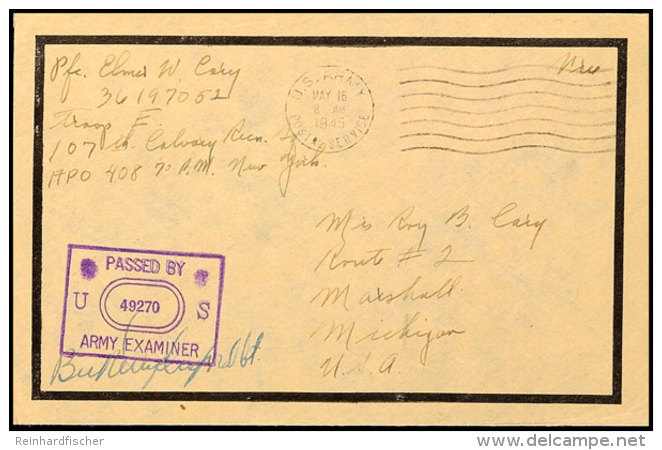 Pfc. Elmer W. Cary
36197052
Troop E.
107th. Calvary Recn. Sq.
APO 408 % P.M. New York.
Free
U.S. ARMY
MAY 16
8 AM
1945
POSTAL SERVICE
Mrs Roy B. Cary
Route # 2
Marshall
Michigan
U.S.A.
PASSED BY
U 49270 S
ARMY EXAMINER
Reinhardfischer
delcampe.net